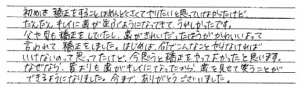 初めは矯正をすることはめんどくさくてやりたいと思っていなかったけど、
だんだんキレイに歯が並ぶようになってきてうれしかったです。
父や兄も矯正をしていたし、歯がきれいだったほうがかわいいよって
言われて矯正をしました。はじめは、なんでこんなことやらなければ
いけないのって思ってたけど、今思うと矯正をやってよかったと思います。
なぜなら、昔よりも歯がキレイになったから！歯を見せて笑うことが
できるようになりました。今まで、ありがとうございました。